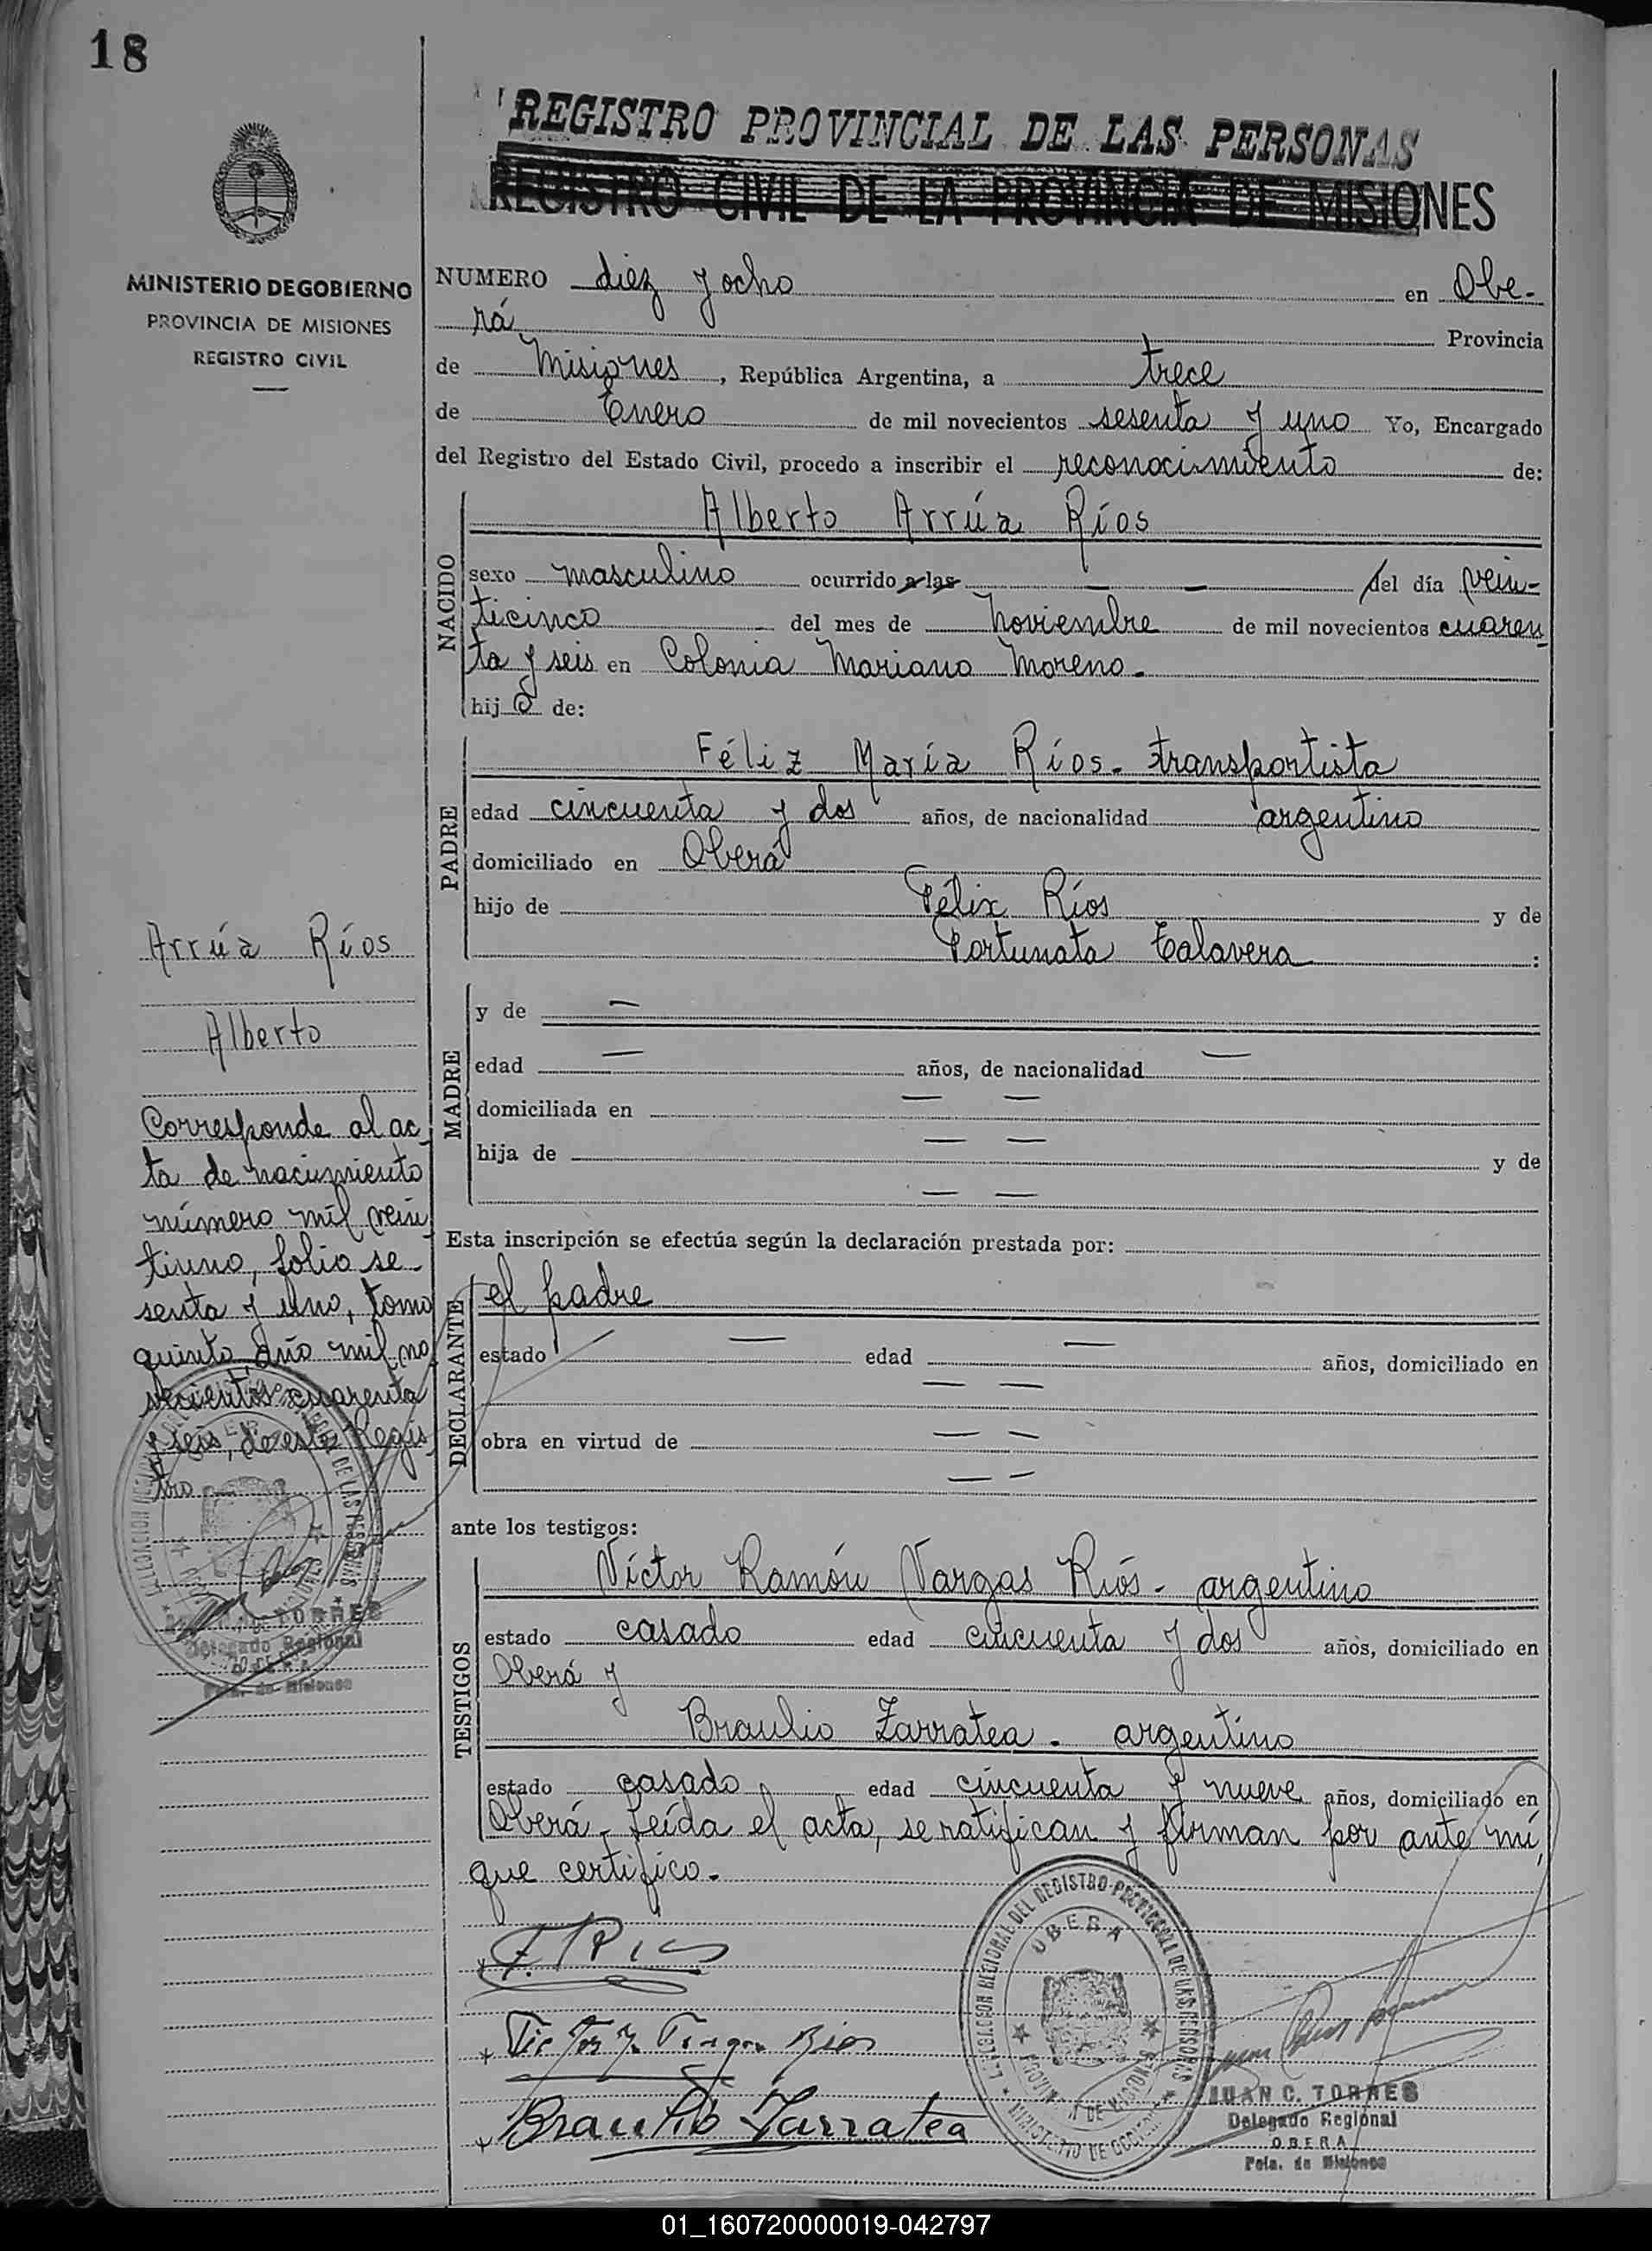 18
REGISTRO PROVINCIAL DE LAS PERSONAS
REGISTRO CIVIL DE LA PROVINCIA DE MISIONES
MINISTERIO DE GOBIERNO
PROVINCIA DE MISIONES
REGISTRO CIVIL
NUMERO diez y ocho en Obe-
rá Provincia
de Misiones, República Argentina, a trece
de Enero de mil novecientos sesenta y uno Yo, Encargado
del Registro del Estado Civil, procedo a inscribir el reconocimiento de:
NACIDO
Alberto Arrúa Ríos
sexo masculino ocurrido a las — — del día vein-
ticinco del mes de Noviembre de mil novecientos cuaren
ta y seis en Colonia Mariano Moreno.
hijo de:
PADRE
Féliz María Ríos - transportista
edad cincuenta y dos años, de nacionalidad argentino
domiciliado en Oberá
hijo de Félix Ríos y de
Fortunata Talavera :
MADRE
y de —
edad — años, de nacionalidad —
domiciliada en — —
hija de — — y de
— —
Esta inscripción se efectúa según la declaración prestada por:
DECLARANTE
el padre
estado — edad — años, domiciliado en
— —
obra en virtud de — —
— —
ante los testigos:
TESTIGOS
Víctor Ramón Vargas Ríos - argentino
estado casado edad cincuenta y dos años, domiciliado en
Oberá y
Braulio Zarratea - argentino
estado casado edad cincuenta y nueve años, domiciliado en
Oberá - Leída el acta, se ratifican y firman por ante mí,
que certifico.
Arrúa Ríos
Alberto
Corresponde al ac
ta de nacimiento
número mil vein
tiuno, folio se-
senta y uno, tomo
quinto, año mil no
vecientos cuarenta
y seis, de este Regis
tro
TORRES
Delegado Regional
OBERA
Pcia. de Misiones
F. M Rios
Victor R. Vargas Rios
Braulio Zarratea
DELEGACION REGIONAL DEL REGISTRO PROVINCIAL DE LAS PERSONAS
OBERA
MINISTERIO DE GOBIERNO
JUAN C. TORRES
Delegado Regional
OBERA
Pcia. de Misiones
01_160720000019-042797